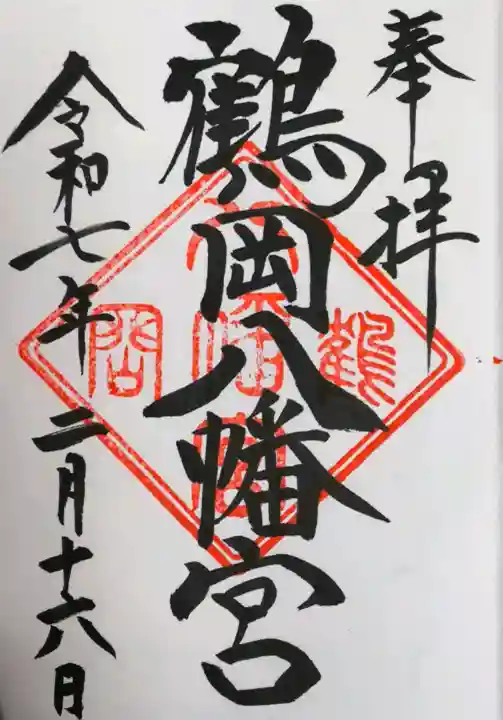 奉拝
鶴岡八幡宮
鶴
八幡宮
岡
令和七年二月十六日